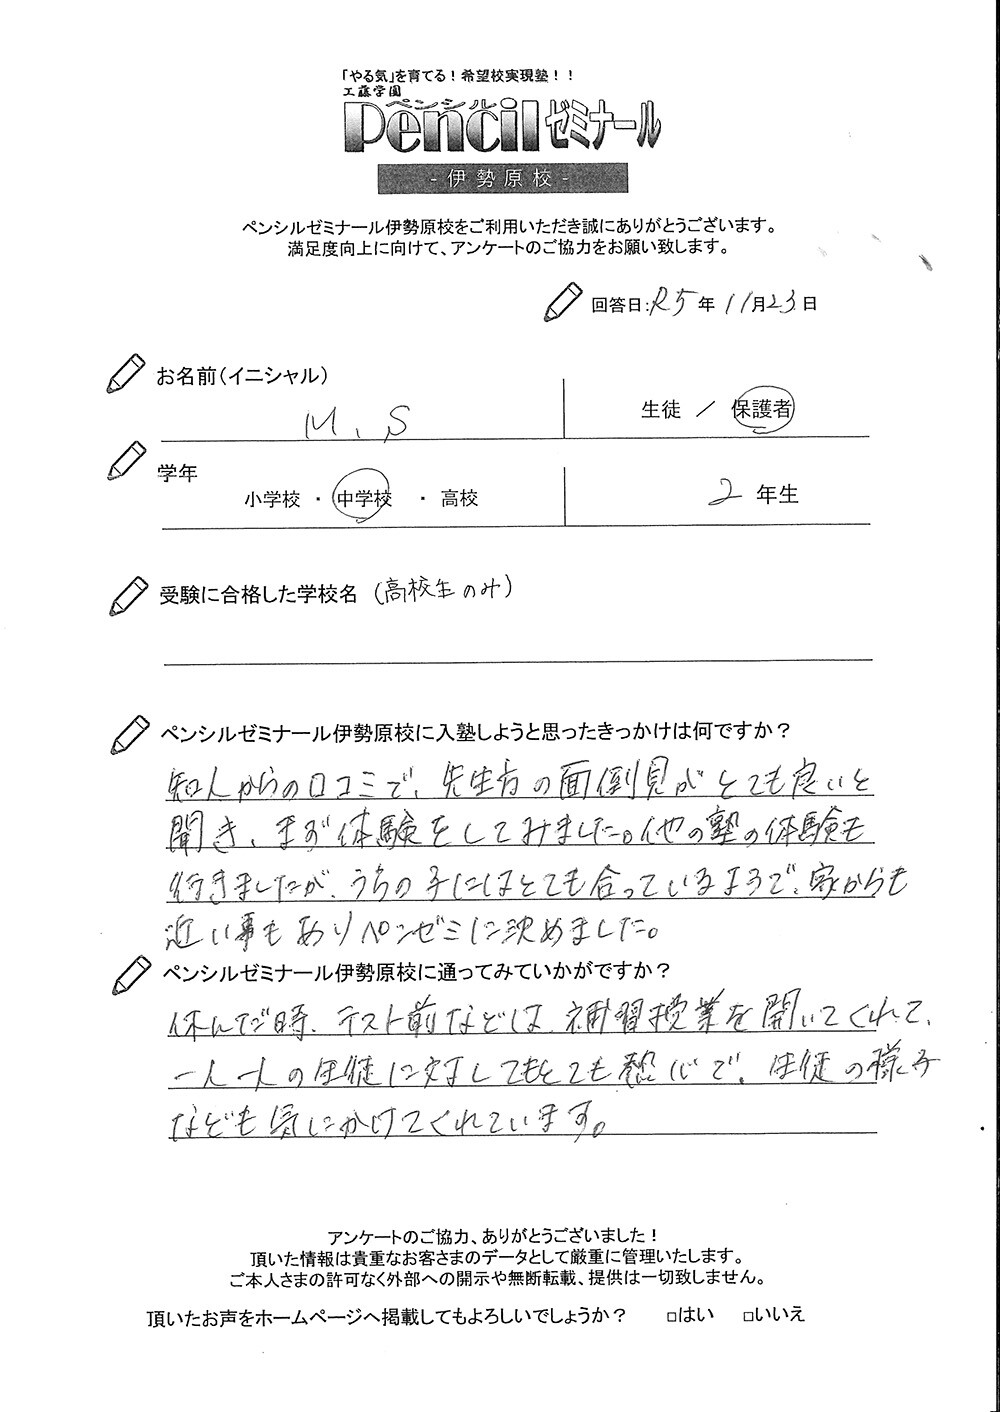 「やる気」を育てる！希望校実現塾！！
工藤学園
ペンシル
Pencilゼミナール
- 伊勢原校 -
ペンシルゼミナール伊勢原校をご利用いただき誠にありがとうございます。
満足度向上に向けて、アンケートのご協力をお願い致します。
回答日:R5年11月23日
お名前（イニシャル）
M.S
生徒 ／ 保護者
学年
小学校 ・ 中学校 ・ 高校
2年生
受験に合格した学校名（高校生のみ）
ペンシルゼミナール伊勢原校に入塾しようと思ったきっかけは何ですか？
知人からの口コミで、先生方の面倒見がとても良いと
聞き、まず体験をしてみました。他の塾の体験も
行きましたが、うちの子にはとても合っているようで、家からも
近い事もありペンゼミに決めました。
ペンシルゼミナール伊勢原校に通ってみていかがですか？
休んだ時、テスト前などは、補習授業を開いてくれて、
一人一人の生徒に対してもとても熱心で、生徒の様子
なども気にかけてくれています。
アンケートのご協力、ありがとうございました！
頂いた情報は貴重なお客さまのデータとして厳重に管理いたします。
ご本人さまの許可なく外部への開示や無断転載、提供は一切致しません。
頂いたお声をホームページへ掲載してもよろしいでしょうか？ □はい □いいえ